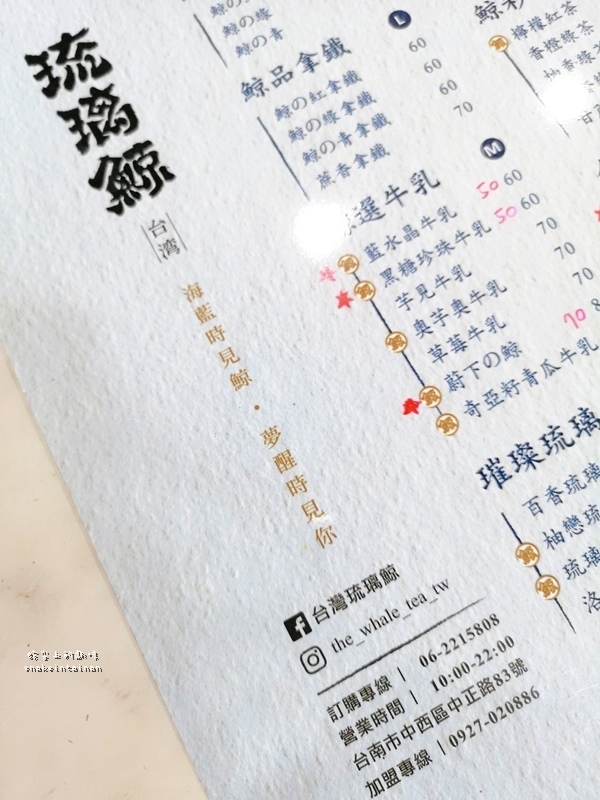 琉璃鯨
台湾
海藍時見鯨・夢醒時見你
鯨の綠
鯨の青
L
鯨品拿鐵
鯨の紅拿鐵 60
鯨の綠拿鐵 60
鯨の青拿鐵 60
蔗香拿鐵 70
檸檬紅茶
香橙綠茶
M
選牛乳
藍水晶牛乳 50 60
黑糖珍珠牛乳 50 60
芋見牛乳 70
奧芋奧牛乳 70
草莓牛乳 70
蔚下の鯨 70 8
奇亞籽青瓜牛乳
璀璨琉璃
百香琉璃
柚戀琉
琉璃
洛
台灣琉璃鯨
the_whale_tea_tw
訂購專線 | 06-2215808
營業時間 | 10:00-22:00
台南市中西區中正路83號
加盟專線 | 0927-020886
snakeintainan